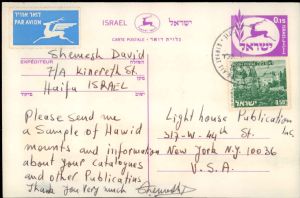 דואר אויר
PAR AVION
ISRAEL ישראל
CARTE POSTALE - גלויית דואר
0.15
ישראל
EXPÉDITEUR
Shemesh David
7/A Kinereth St.
Haifa ISRAEL
Please send me
a Sample of Hawid
mounts and information
about your catalogues
and other Publications
Thank you Very much
Light house Publication
Inc
317-W. 44th St.
New York N.Y. 10036
U.S.A.
ישראל
ISRAEL 0.50